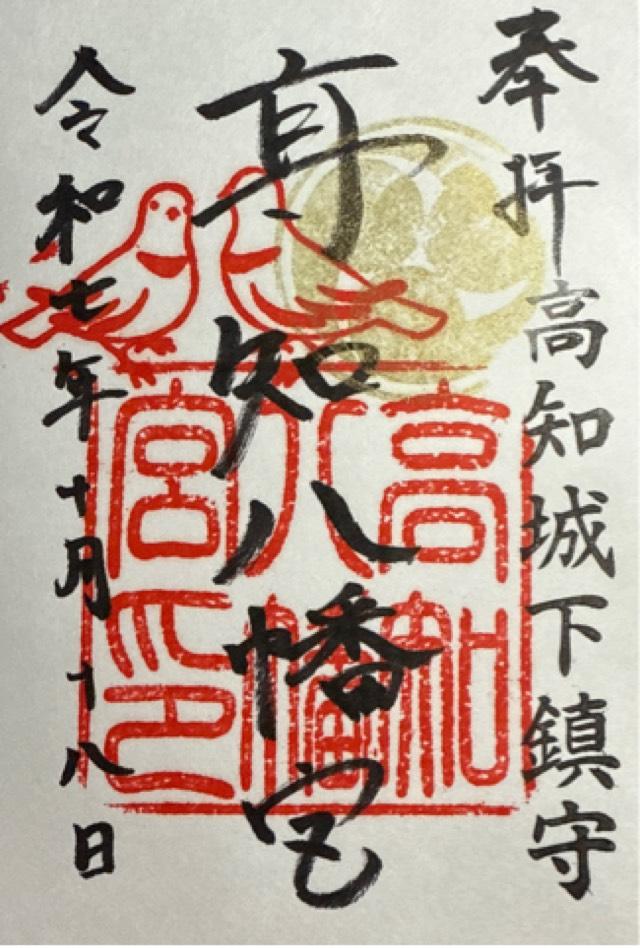 奉拝
高知城下鎮守
高知八幡宮
令和七年十月十八日
高知
八幡
宮印